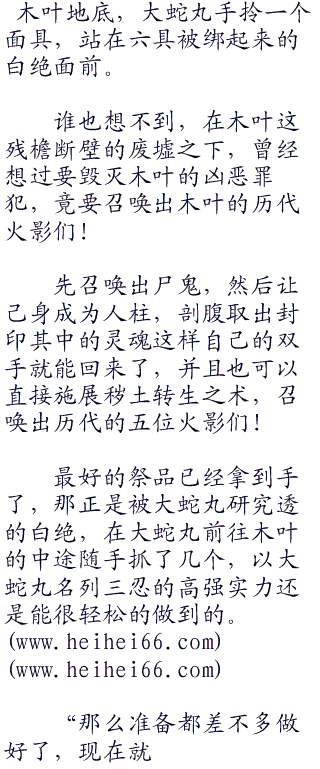 木叶地底，大蛇丸手拎一个
面具，站在六具被绑起来的
白绝面前。
谁也想不到，在木叶这
残檐断壁的废墟之下，曾经
想过要毁灭木叶的凶恶罪
犯，竟要召唤出木叶的历代
火影们！
先召唤出尸鬼，然后让
己身成为人柱，剖腹取出封
印其中的灵魂这样自己的双
手就能回来了，并且也可以
直接施展秽土转生之术，召
唤出历代的五位火影们！
最好的祭品已经拿到手
了，那正是被大蛇丸研究透
的白绝，在大蛇丸前往木叶
的中途随手抓了几个，以大
蛇丸名列三忍的高强实力还
是能很轻松的做到的。
(www.heihei66.com)
(www.heihei66.com)
“那么准备都差不多做
好了，现在就